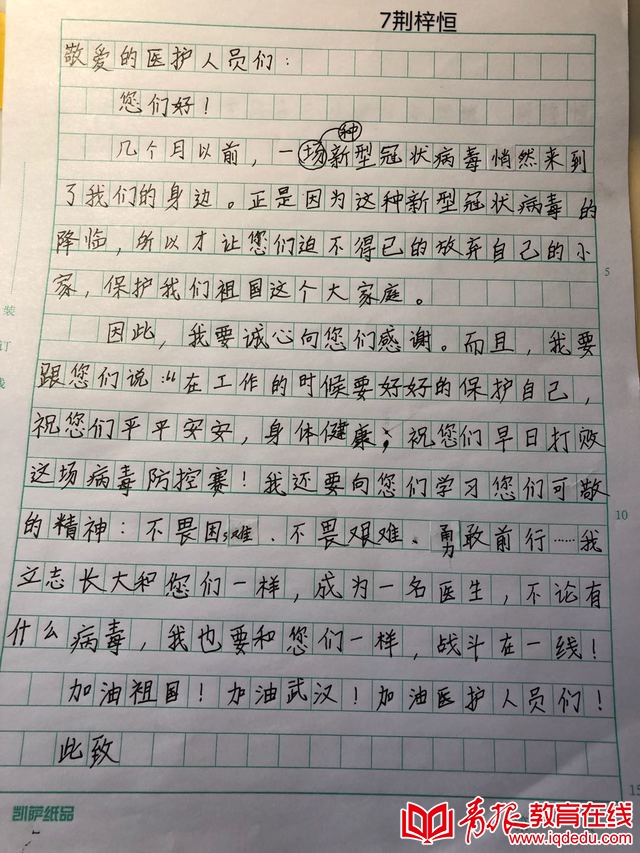 7荆梓恒
敬爱的医护人员们：
您们好！
种
几个月以前，一场新型冠状病毒悄然来到
了我们的身边。正是因为这种新型冠状病毒的
降临，所以才让您们迫不得已的放弃自己的小
家，保护我们祖国这个大家庭。
5
因此，我要诚心向您们感谢。而且，我要
跟您们说：“在工作的时候要好好的保护自己，
祝您们平平安安，身体健康；祝您们早日打败
这场病毒防控赛！我还要向您们学习您们可敬
10
的精神：不畏困难、不畏艰难、勇敢前行……我
立志长大和您们一样，成为一名医生，不论有
什么病毒，我也要和您们一样，战斗在一线！
加油祖国！加油武汉！加油医护人员们！
此致
15
装
订
线
凯萨纸品
青报教育在线
www.iqdedu.com